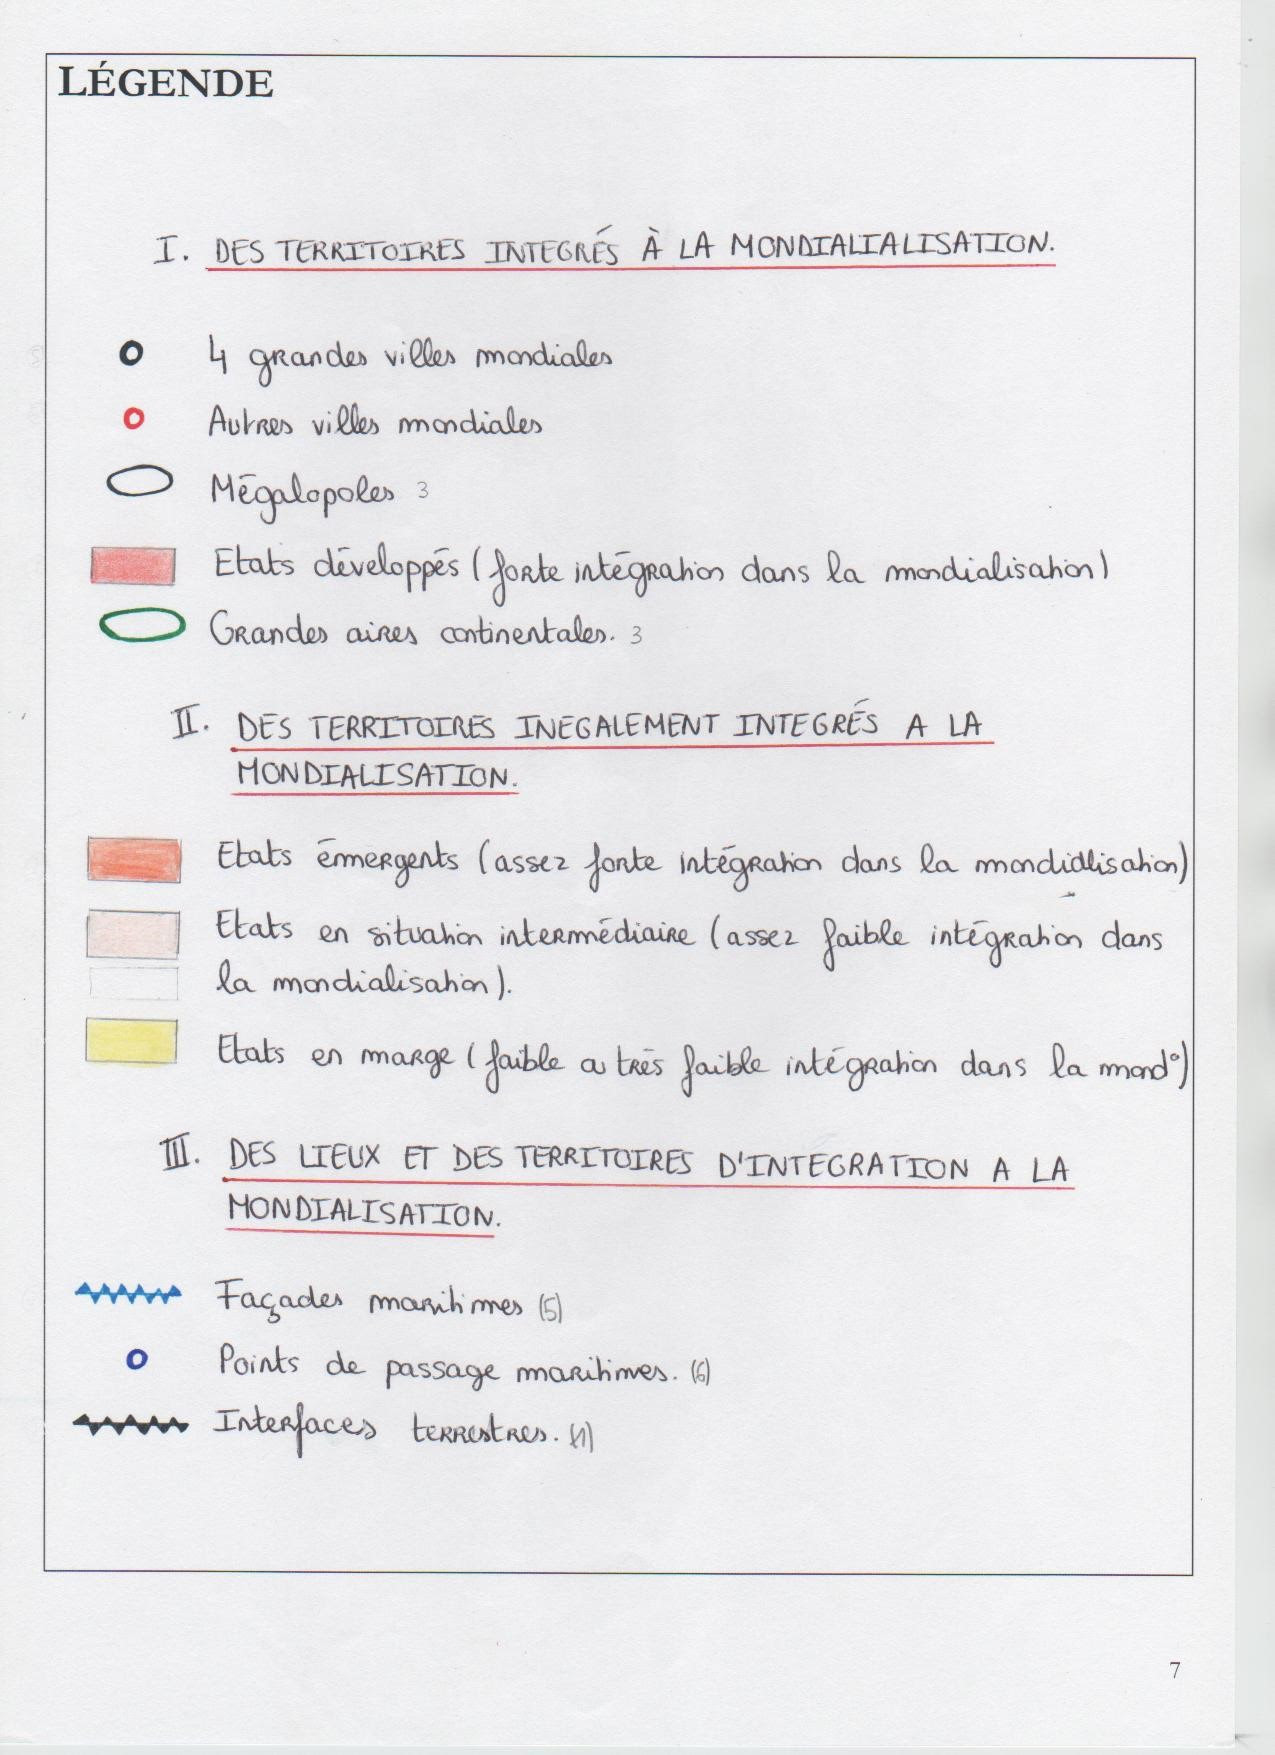 LÉGENDE
I. DES TERRITOIRES INTEGRÉS À LA MONDIALIALISATION.
4 grandes villes mondiales
Autres villes mondiales
Mégalopoles 3
Etats développés (forte intégration dans la mondialisation)
Grandes aires continentales. 3
II. DES TERRITOIRES INEGALEMENT INTEGRÉS A LA
MONDIALISATION.
Etats émmergents (assez forte intégration dans la mondialisation)
Etats en situation intermédiaire (assez faible intégration dans
la mondialisation).
Etats en marge (faible a très faible intégration dans la mond°)
III. DES LIEUX ET DES TERRITOIRES D'INTEGRATION A LA
MONDIALISATION.
Façades maritimes (5)
Points de passage maritimes. (6)
Interfaces terrestres. (1)
7